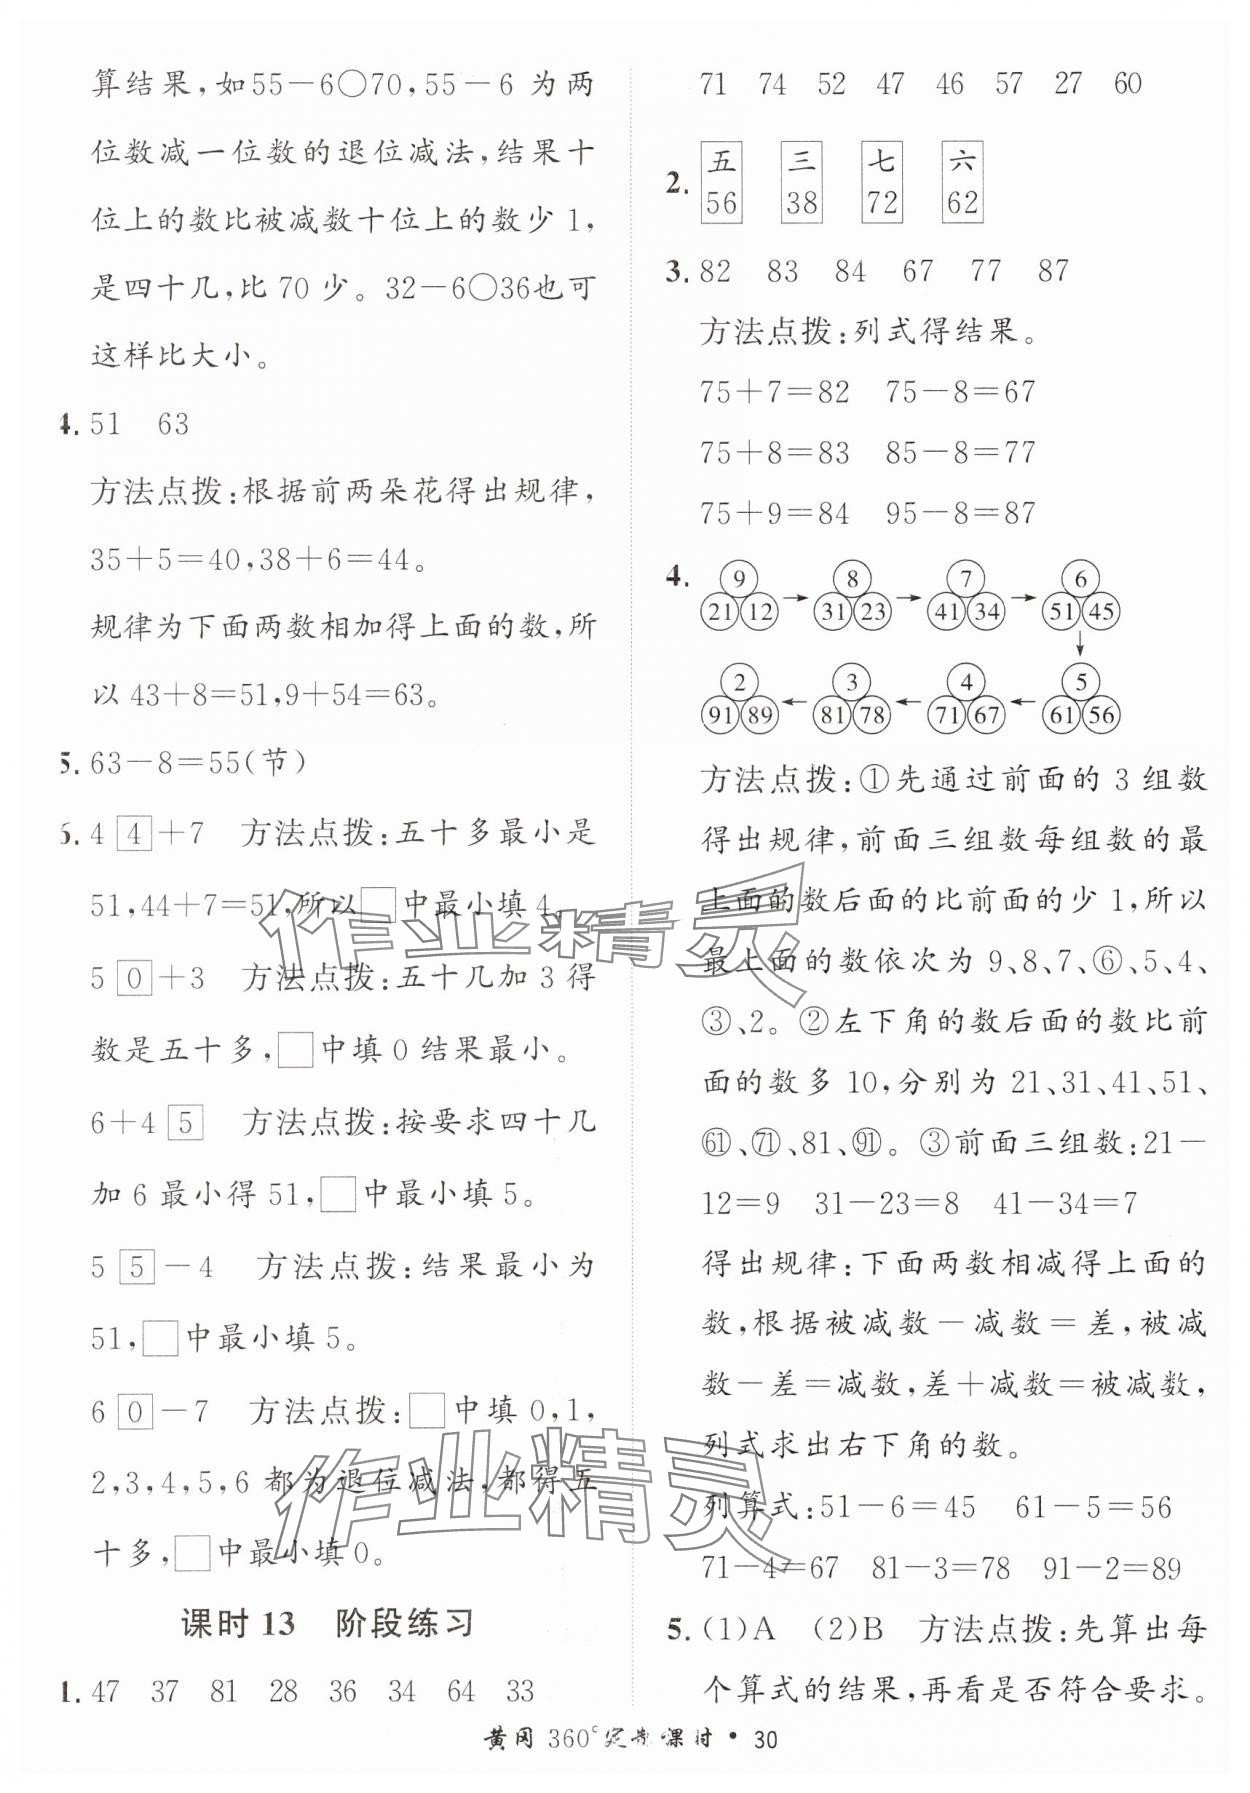 算结果,如55-6○70,55-6 为两
位数减一位数的退位减法,结果十
位上的数比被减数十位上的数少1,
是四十几,比 70 少。32-6○36也可
这样比大小。
4. 51 63
方法点拨:根据前两朵花得出规律,
35+5=40,38+6=44。
规律为下面两数相加得上面的数,所
以 43+8=51,9+54=63。
5. 63-8=55(节)
6. 4 4 +7 方法点拨:五十多最小是
51,44+7=51,所以□中最小填 4。
5 0 +3 方法点拨:五十几加 3 得
数是五十多,□中填 0 结果最小。
6+4 5 方法点拨:按要求四十几
加 6 最小得 51,□中最小填 5。
5 5 -4 方法点拨:结果最小为
51,□中最小填 5。
6 0 -7 方法点拨:□中填 0,1,
2,3,4,5,6 都为退位减法,都得五
十多,□中最小填 0。
课时 13 阶段练习
1. 47 37 81 28 36 34 64 33
71 74 52 47 46 57 27 60
2. 五 三 七 六
56 38 72 62
3. 82 83 84 67 77 87
方法点拨:列式得结果。
75+7=82 75-8=67
75+8=83 85-8=77
75+9=84 95-8=87
4. 9 8 7 6
21 12 → 31 23 → 41 34 → 51 45
↓
2 3 4 5
91 89 ← 81 78 ← 71 67 ← 61 56
方法点拨:①先通过前面的 3 组数
得出规律,前面三组数每组数的最
上面的数后面的比前面的少 1,所以
最上面的数依次为 9、8、7、⑥、5、4、
③、2。②左下角的数后面的数比前
面的数多 10,分别为 21、31、41、51、
61、71、81、91。③前面三组数:21-
12=9 31-23=8 41-34=7
得出规律:下面两数相减得上面的
数,根据被减数-减数=差,被减
数-差=减数,差+减数=被减数,
列式求出右下角的数。
列算式:51-6=45 61-5=56
71-4=67 81-3=78 91-2=89
5. (1)A (2)B 方法点拨:先算出每
个算式的结果,再看是否符合要求。
黄冈 360°定制课时 • 30
作业精灵
作业精灵